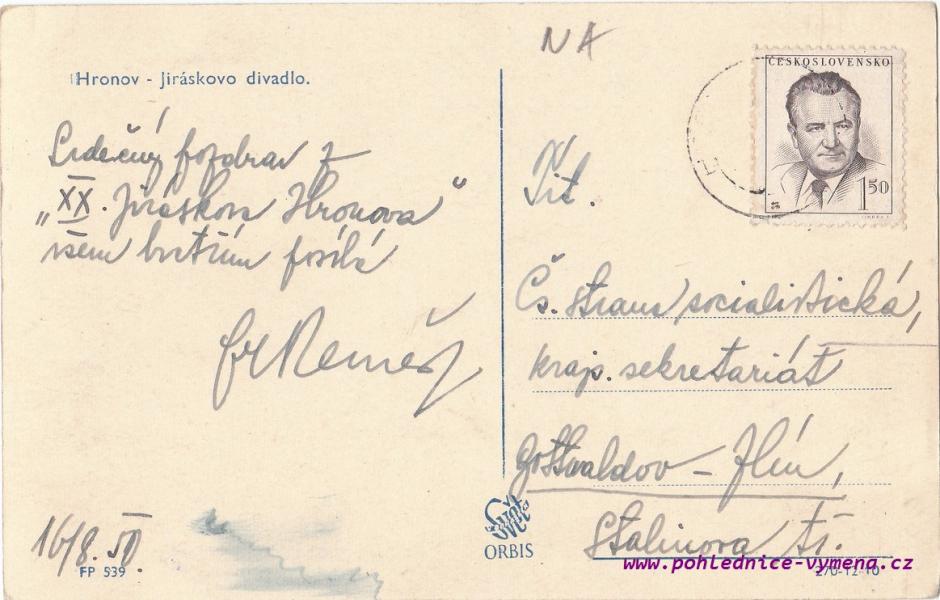 NA
Hronov - Jiráskovo divadlo.
ČESKOSLOVENSKO
1 50
Srdečný pozdrav z
„XX. Jiráskova Hronova"
všem bratřím posílá
Tit.
Čs. strana socialistická,
kraj. sekretariát
Gottwaldov - Zlín,
Stalinova tř.
16/8. 50.
FP 539
ORBIS
www.pohlednice-vymena.cz